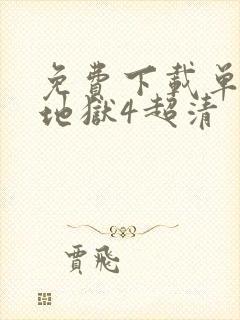 免費下載單
地獄4超清
賈飛